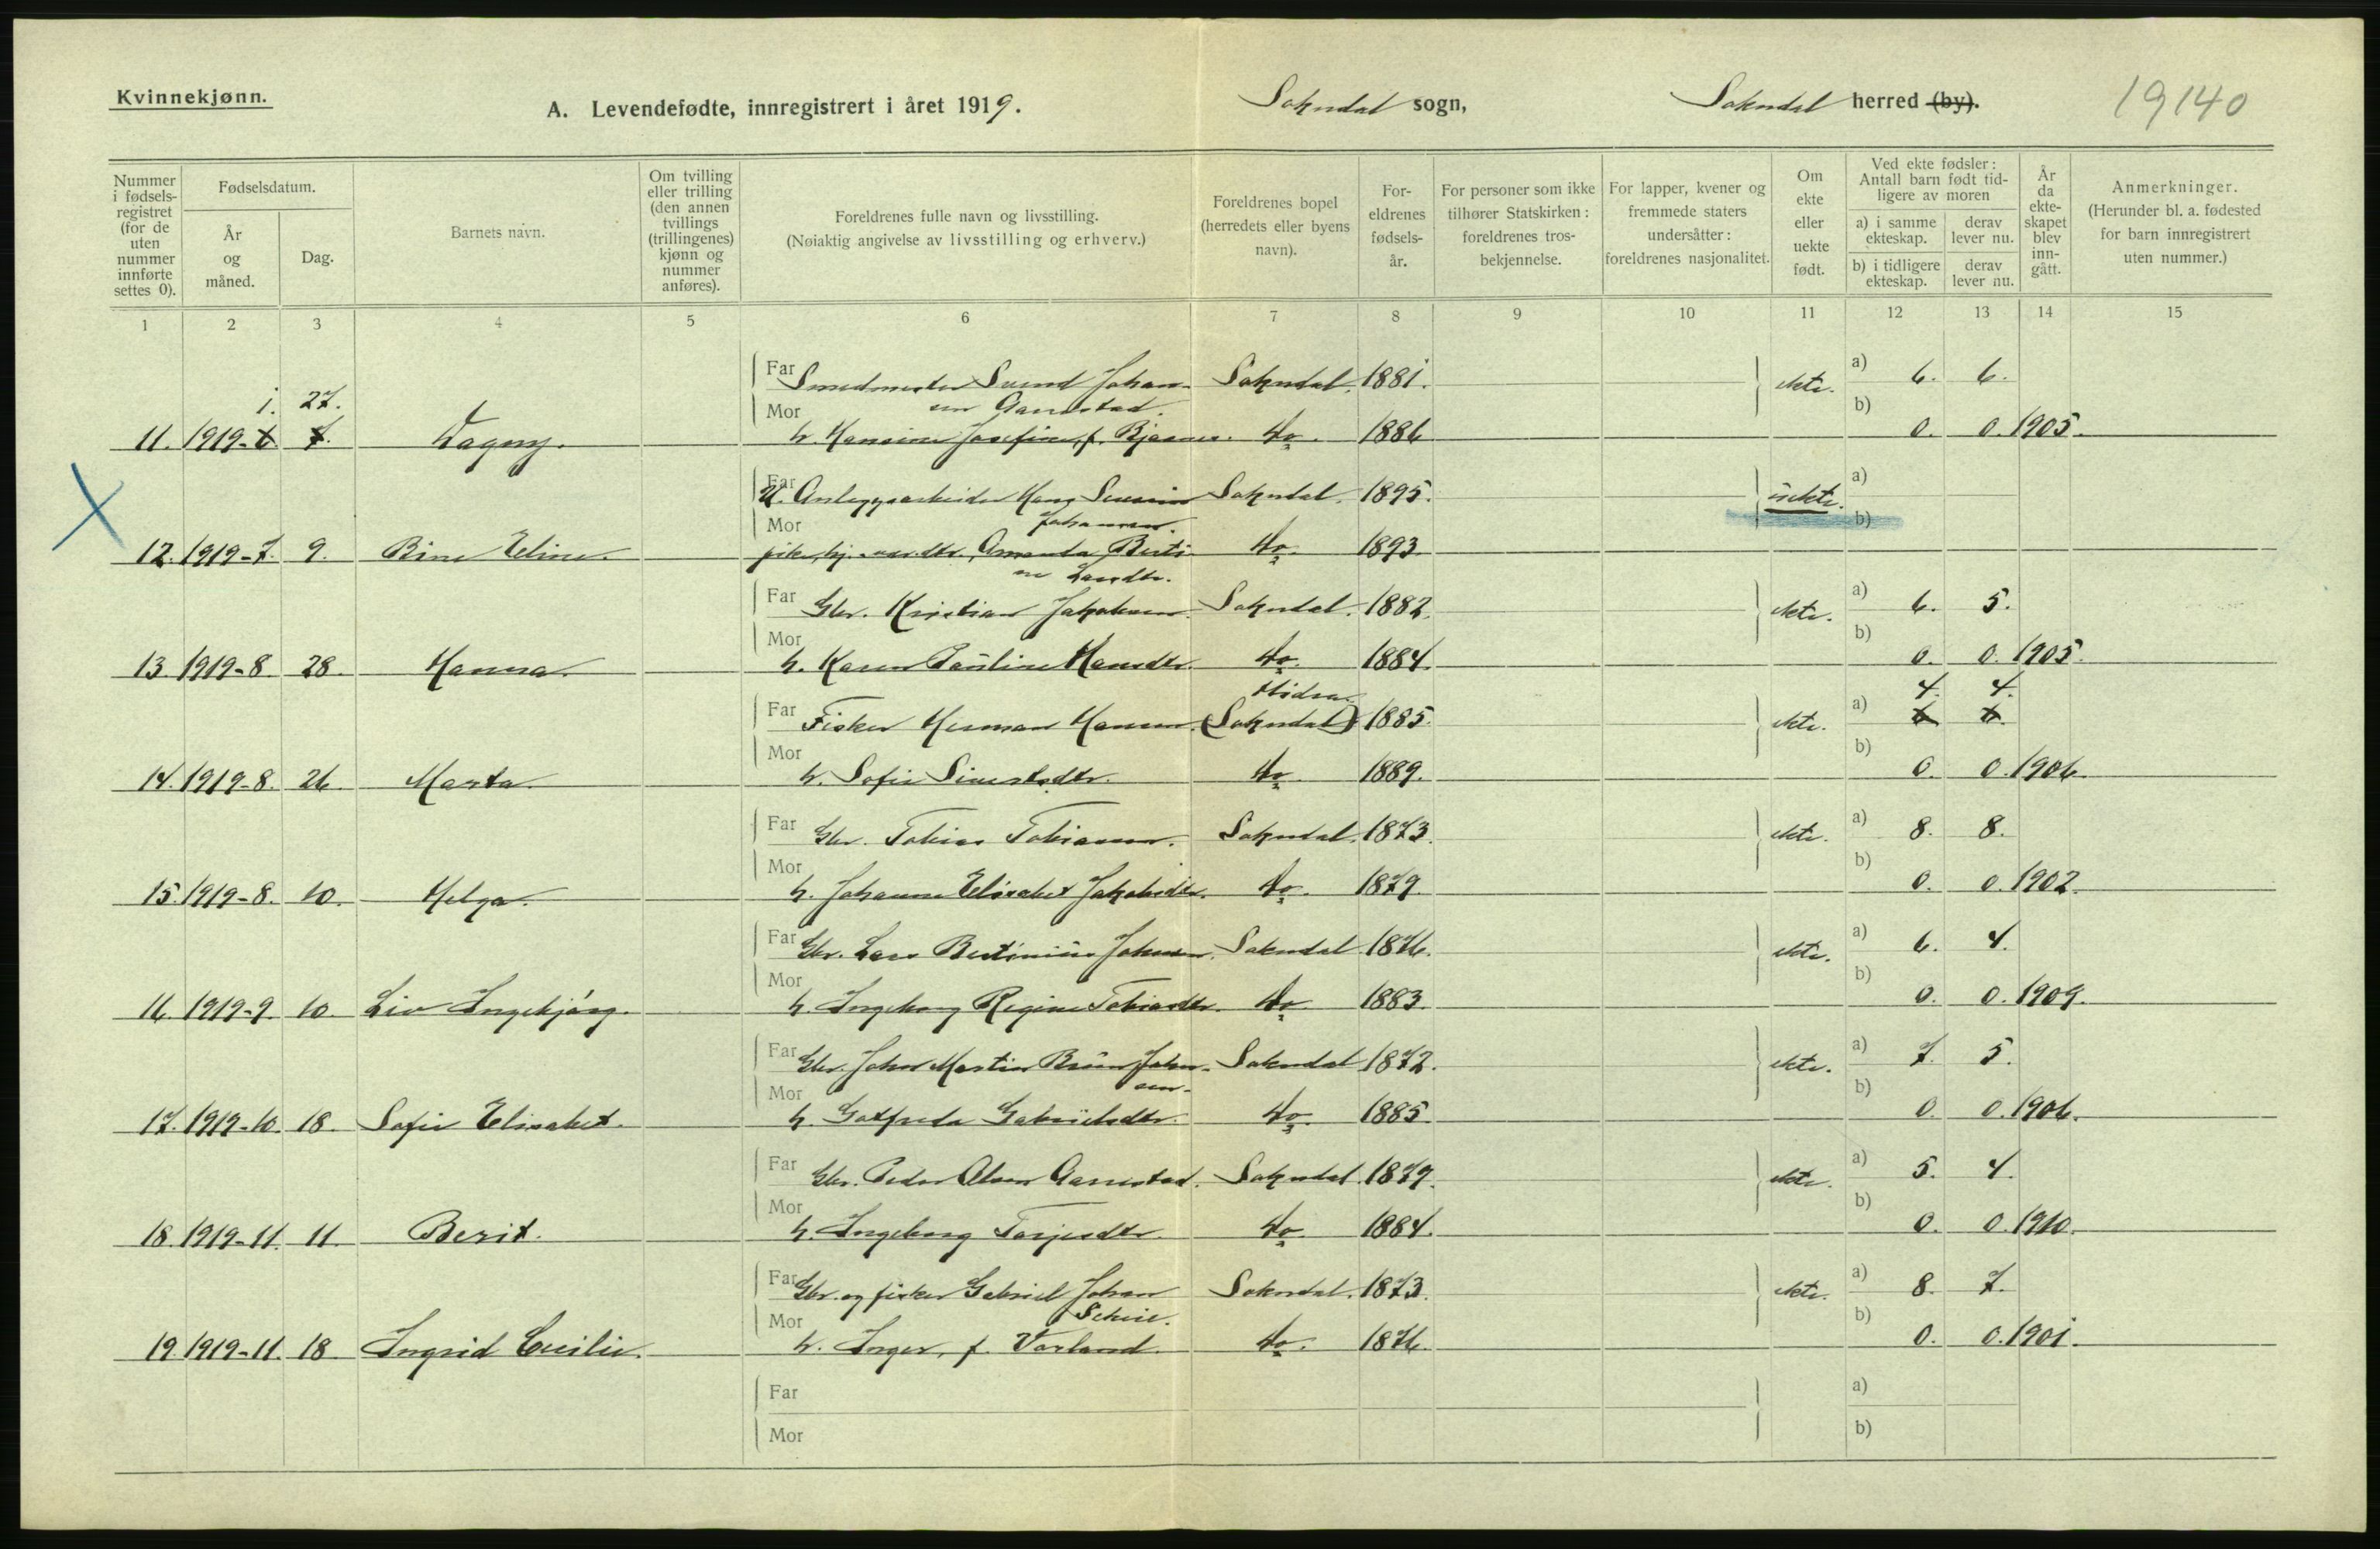 Kvinnekjønn.
A. Levendefødte, innregistrert i året 1919.
Sokndal sogn,
Sokndal herred (by).
19140
Nummer i fødsels-registret (for de uten nummer innførte settes 0).
Fødselsdatum.
År og måned.
Dag.
Barnets navn.
Om tvilling eller trilling (den annen tvillings (trillingenes) kjønn og nummer anføres).
Foreldrenes fulle navn og livsstilling.
(Nøiaktig angivelse av livsstilling og erhverv.)
Foreldrenes bopel (herredets eller byens navn).
For-eldrenes fødsels-år.
For personer som ikke tilhører Statskirken: foreldrenes tros-bekjennelse.
For lapper, kvener og fremmede staters undersåtter: foreldrenes nasjonalitet.
Om ekte eller uekte født.
Ved ekte fødsler: Antall barn født tid-ligere av moren
a) i samme ekteskap.
derav lever nu.
b) i tidligere ekteskap.
derav lever nu.
År da ekte-skapet blev inn-gått.
Anmerkninger.
(Herunder bl. a. fødested for barn innregistrert uten nummer.)
1 2 3 4 5 6 7 8 9 10 11 12 13 14 15
Far Smedmester Svend Johan- Sokndal. 1881. ekte. a) 6. 6.
1. 27.
sen Aanestad. b)
11. 1919-6. 7. Dagny. Mor h. Hansine Josefine, f. Bjaanes. do. 1886 0. 0. 1905.
Far U. Anlegsarbeider Hans Severin Sokndal. 1895. uekte. a)
Johansen. b)
12. 1919-7. 9. Bine Eline. Mor pike, hj.vær. dtr. Amanda Berti- do. 1893.
ne Larsdtr.
Far Gbr. Kristian Jakobsen. Sokndal. 1882. ekte. a) 6. 5.
b)
13. 1919-8. 28. Hanna. Mor h. Karen Pauline Hansdtr. do. 1884. 0. 0. 1905.
Hidra. 4. 4.
Far Fisker Herman Hansen. (Sokndal) 1885. ekte. a) 6 6.
b)
14. 1919-8. 26. Marta. Mor h. Sofie Sivertsdtr. do. 1889. 0. 0. 1906.
Far Gbr. Tobias Tobiassen. Sokndal. 1873. ekte. a) 8. 8.
b)
15. 1919-8. 10. Helga. Mor h. Johanne Elisabet Jakobsdtr. do. 1879. 0. 0. 1902.
Far Gbr. Lars Bertinius Johnsen. Sokndal 1876. ekte. a) 6. 4.
b)
16. 1919-9. 10. Liv Ingebjørg. Mor h. Ingeborg Regine Tobiasdtr. do. 1883. 0. 0. 1909.
Far Gbr. John Martin Bruun John- Sokndal 1872. ekte. a) 7. 5.
sen. b)
17. 1919-10. 18. Sofie Elisabet. Mor h. Gotfreda Gabrielsdtr. do. 1885. 0. 0. 1906.
Far Gbr. Peder Olsen Aanestad. Sokndal. 1879. ekte. a) 5. 4.
b)
18. 1919-11. 11. Berit. Mor h. Ingeborg Tarjesdtr. do. 1884. 0. 0. 1910.
Far Gbr. og fisker Gabriel Johan Sokndal. 1873. ekte. a) 8. 7.
b)
19. 1919-11. 18. Ingrid Cecilie. Mor h. Inger, f. Varland. do. 1876. 0. 0. 1901.
Far a)
Mor b)